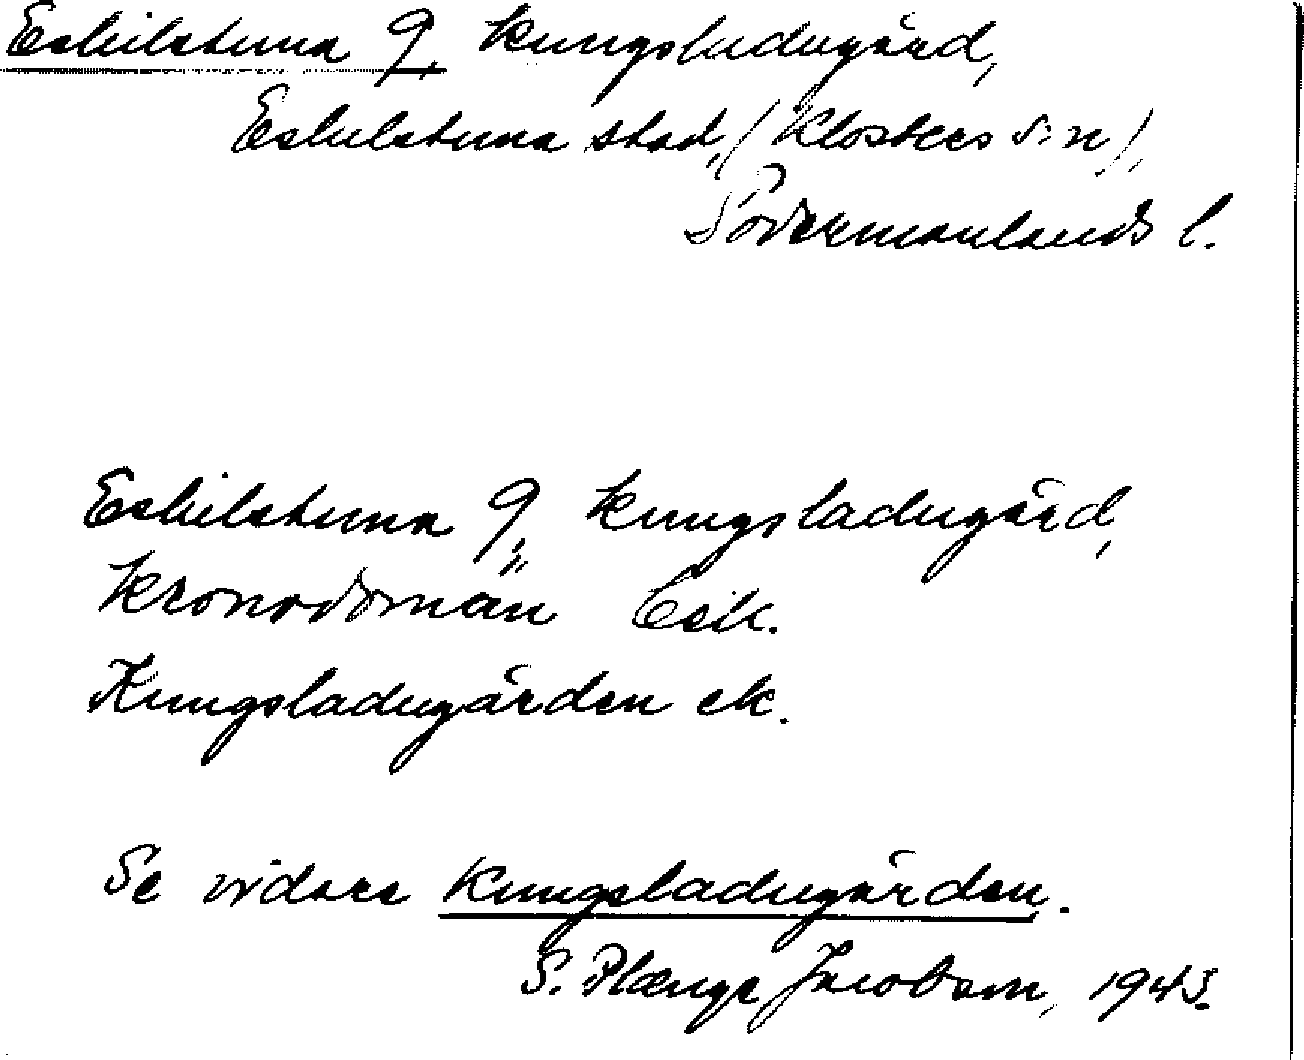 Eskilstuna 9, kungsladugård,
Eskilstuna stad, (Klosters s:n),
Södermanlands l.
Eskilstuna 9, kungsladugård,
kronodomän Esk.
Kungsladugården ek.
Se vidare Kungsladugården.
S. Plænge Jacobson, 1945.